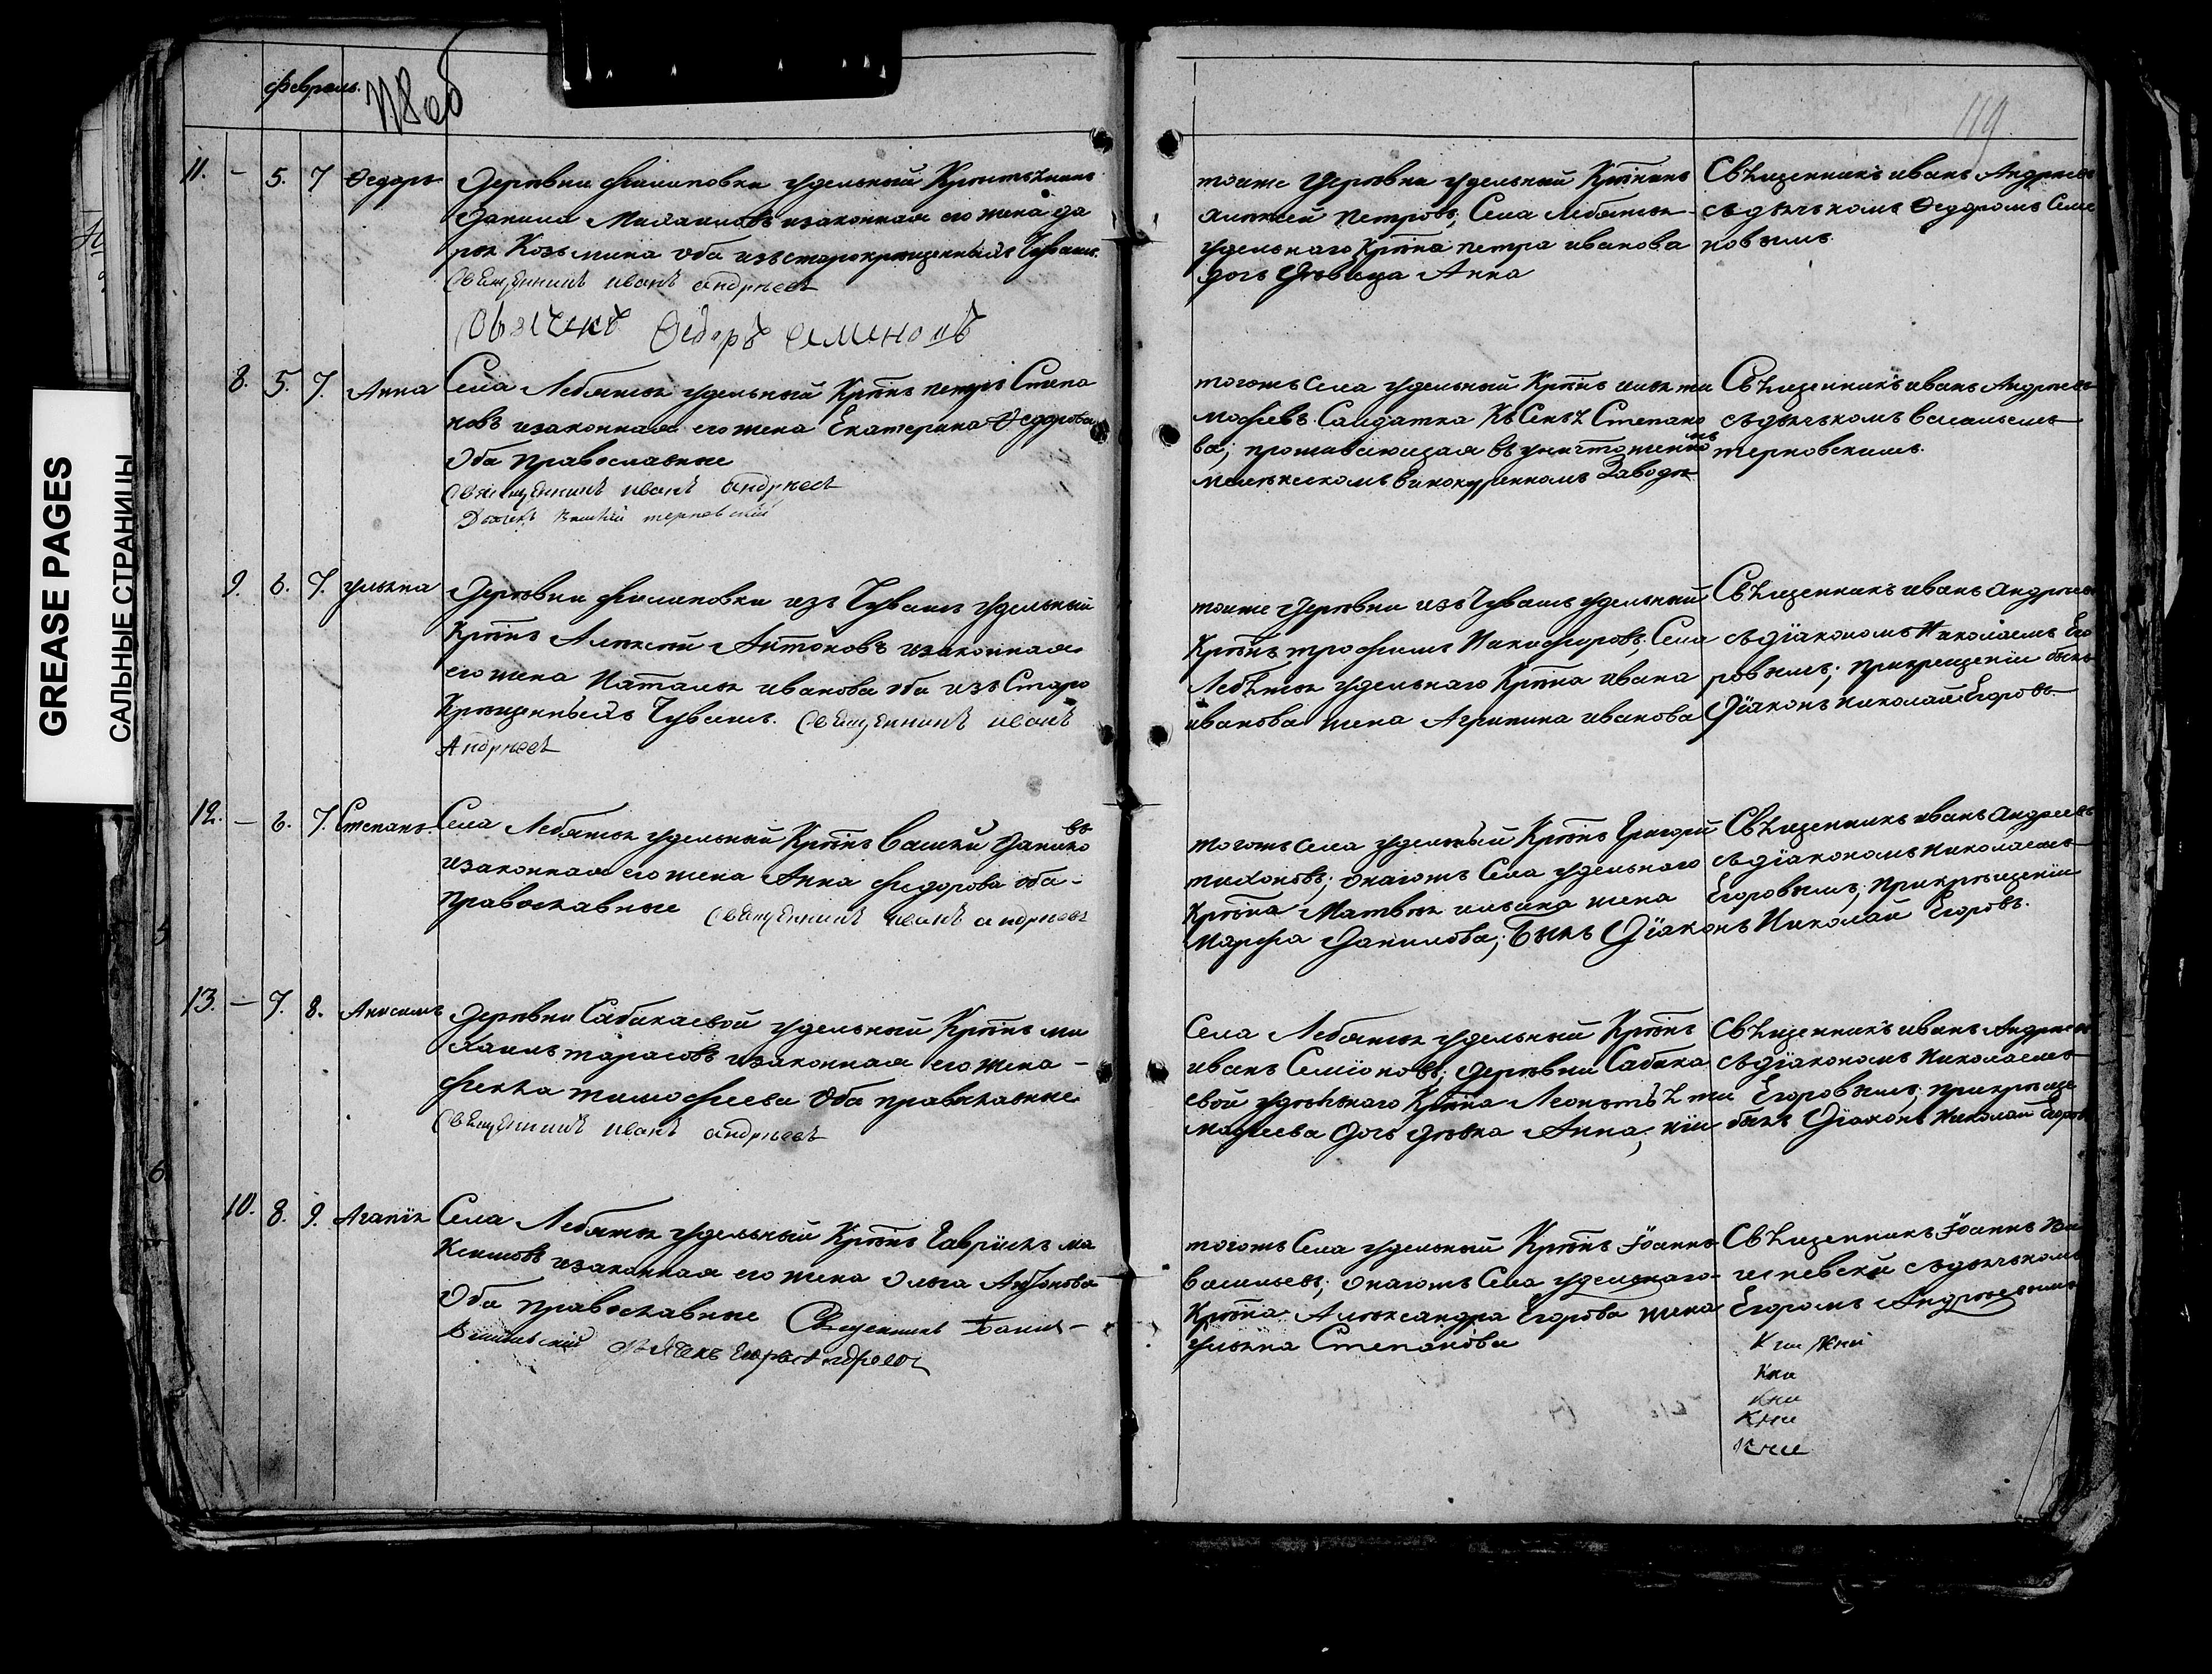 февраль.
118 об
119
GREASE PAGES
САЛЬНЫЕ СТРАНИЦЫ
11. - 5. 7 Ѳедоръ
Деревни Филиповки удельный Крестьянинъ
Данила Михаиловъ изаконная его жена да
рья Козьмина оба изъ старокрещенныхъ Чувашъ.
Священникъ иванъ андреевъ
Дьячекъ Ѳедоръ Семеновъ
тойже Деревни удельный Крѣтнинъ
Алексей петровъ, Села Лебяжья
удельнаго Крѣтна петра иванова
дочь Девица Анна
Свѣщенникъ иванъ Андреевъ
съдьячькомъ Ѳедоромъ Семе
новымъ.
8. 5. 7. Анна
Села Лебяжья удельный Крѣтнъ петръ Степа
новъ изаконная его жена Екатерина Ѳедорова
Оба православные
Священникъ иванъ андреевъ
Дьячекъ Василий терновский
тогожъ Села удельный Крѣтнъ илья ти
мофѣевъ. Салдатка Ксеньѣ Степано
ва; проживающая въ уничтоженно
мъ
мелекескомъ винокуренномъ Заводѣ
Свѣщенникъ иванъ Андреевъ
съдьячькомъ васильемъ
терновскимъ.
9. 6. 7. ульяна
Деревни филиповки изъ Чувашъ удельный
Крѣтнъ Алексей Антоновъ изаконная
его жена Наталья иванова оба изъ Старо
Крещенныхъ Чувашъ. Священникъ иванъ
Андреевъ
тойже Деревни изъ Чувашъ удельный
Крѣтнъ трофимъ Никифоровъ, Села
Лебѣжья удельнаго Крѣтна ивана
иванова жена Агрипина иванова
Свѣщенникъ иванъ андреевъ
съдіакономъ Николаемъ Его
ровымъ; прикрещеніи былъ
Діаконъ николай Егоровъ
12. - 6. 7. Степанъ.
Села Лебяжья удельный Крѣтнъ Василий Данило
въ
изаконная его жена Анна федорова оба -
православные Священникъ иванъ андреевъ
тогожъ Села удельный Крѣтнъ Григорий
тихоновъ; онагожъ Села удельнаго
Крѣтна Матвея ильина жена
марфа Данилова;
Свѣщенникъ иванъ андреевъ
съдіакономъ николаемъ
Егоровымъ, Прикрещеніи
Былъ Діаконъ Николай Егоровъ.
13. - 7. 8. Анисимъ
Деревни Сабакаевой удельный Крѣтнъ ми
хаилъ тарасовъ изаконная его жена -
фекла тимофеева Оба православные
Священникъ иванъ андреевъ
Села Лебяжья удельный Крѣтнъ
иванъ Семіоновъ; Деревни Сабака
евой удельнаго Крѣтна Леонтьѣ ти
мофеева Дочь девка Анна;
Свѣщенникъ иванъ Андреевъ
съдіакономъ николаемъ
Егоровымъ, прикреще
ніи былъ Діаконъ Николай Егоровъ
10. 8. 9. Агапія
Села Лебяжья удельный Крѣтнъ Гаврила ма
ксимовъ изаконная его жена Ольга Антонова
Оба православные Священникъ Іоаннъ
Дьячекъ Егоръ Андреевъ
тогожъ Села удельный Крѣтнъ Іоаннъ
васильевъ; онагожъ Села удельнаго
Крѣтна Александра Егорова жена
ульяна Степанова
Свѣщенникъ Іоаннъ
съдьячькомъ
Егоромъ Андреевымъ
Кни
Кни
Кни
Кни